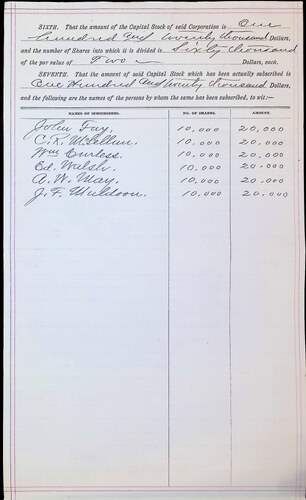 SIXTH. That the amount of the Capital Stock of said Corporation is One
hundred and twenty thousand Dollars,
and the number of Shares into which it is divided is Sixty thousand
of the par value of Two Dollars, each.
SEVENTH. That the amount of said Capital Stock which has been actually subscribed is
One Hundred and twenty thousand Dollars,
and the following are the names of the persons by whom the same has been subscribed, to wit:—
NAMES OF SUBSCRIBERS. NO. OF SHARES. AMOUNT.
John Fay. 10,000 20,000
C. R. McLellan. 10,000 20,000
Wm Curless. 10,000 20,000
Ed. Walsh. 10,000 20,000
A. W. May. 10,000 20,000
J. F. Muldoon. 10,000 20,000